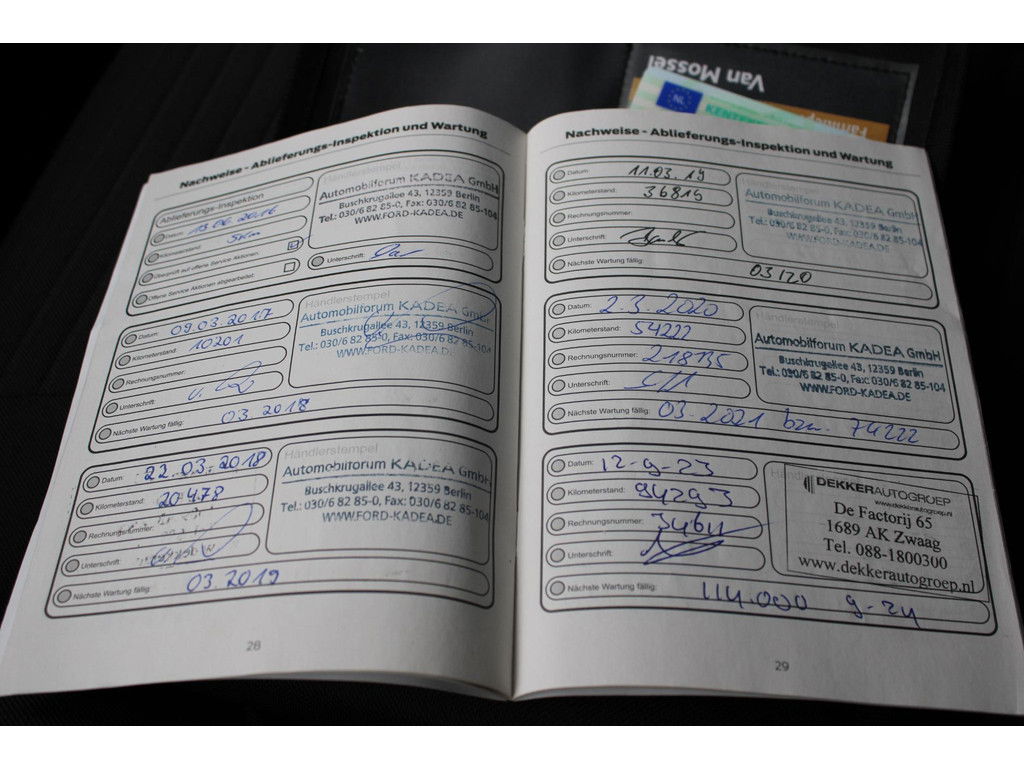 Van Mossel
NL
KENTEKEN
Nachweise - Ablieferungs-Inspektion und Wartung
Ablieferungs-Inspektion
Händlerstempel
Automobilforum KADEA GmbH
Buschkrugallee 43, 12359 Berlin
Tel.: 030/6 82 85-0, Fax: 030/6 82 85-104
WWW.FORD-KADEA.DE
Datum: 13.06.2016
Kilometerstand: 5km
Überprüft auf offene Service Aktionen:
Offene Service Aktionen abgearbeitet:
Unterschrift:
Händlerstempel
Automobilforum KADEA GmbH
Buschkrugallee 43, 12359 Berlin
Tel.: 030/6 82 85-0, Fax: 030/6 82 85-104
WWW.FORD-KADEA.DE
Datum: 09.03.2017
Kilometerstand: 10201
Rechnungsnummer:
Unterschrift:
Nächste Wartung fällig: 03.2018
Händlerstempel
Automobilforum KADEA GmbH
Buschkrugallee 43, 12359 Berlin
Tel.: 030/6 82 85-0, Fax: 030/6 82 85-104
WWW.FORD-KADEA.DE
Datum: 22.03.2018
Kilometerstand: 20478
Rechnungsnummer:
Unterschrift:
Nächste Wartung fällig: 03.2019
28
Nachweise - Ablieferungs-Inspektion und Wartung
Datum: 11.03.19
Kilometerstand: 36815
Rechnungsnummer:
Unterschrift:
Nächste Wartung fällig: 03/20
Händlerstempel
Automobilforum KADEA GmbH
Buschkrugallee 43, 12359 Berlin
Tel.: 030/6 82 85-0, Fax: 030/6 82 85-104
WWW.FORD-KADEA.DE
Datum: 2.3.2020
Kilometerstand: 54222
Rechnungsnummer: 218735
Unterschrift:
Nächste Wartung fällig: 03.2021 bzw. 74222
Händlerstempel
Automobilforum KADEA GmbH
Buschkrugallee 43, 12359 Berlin
Tel.: 030/6 82 85-0, Fax: 030/6 82 85-104
WWW.FORD-KADEA.DE
Datum: 12-9-23
Kilometerstand: 94293
Rechnungsnummer: 34611
Unterschrift:
Nächste Wartung fällig: 114.000 9-24
DEKKERAUTOGROEP
www.dekkerautogroep.nl
De Factorij 65
1689 AK Zwaag
Tel. 088-1800300
www.dekkerautogroep.nl
29